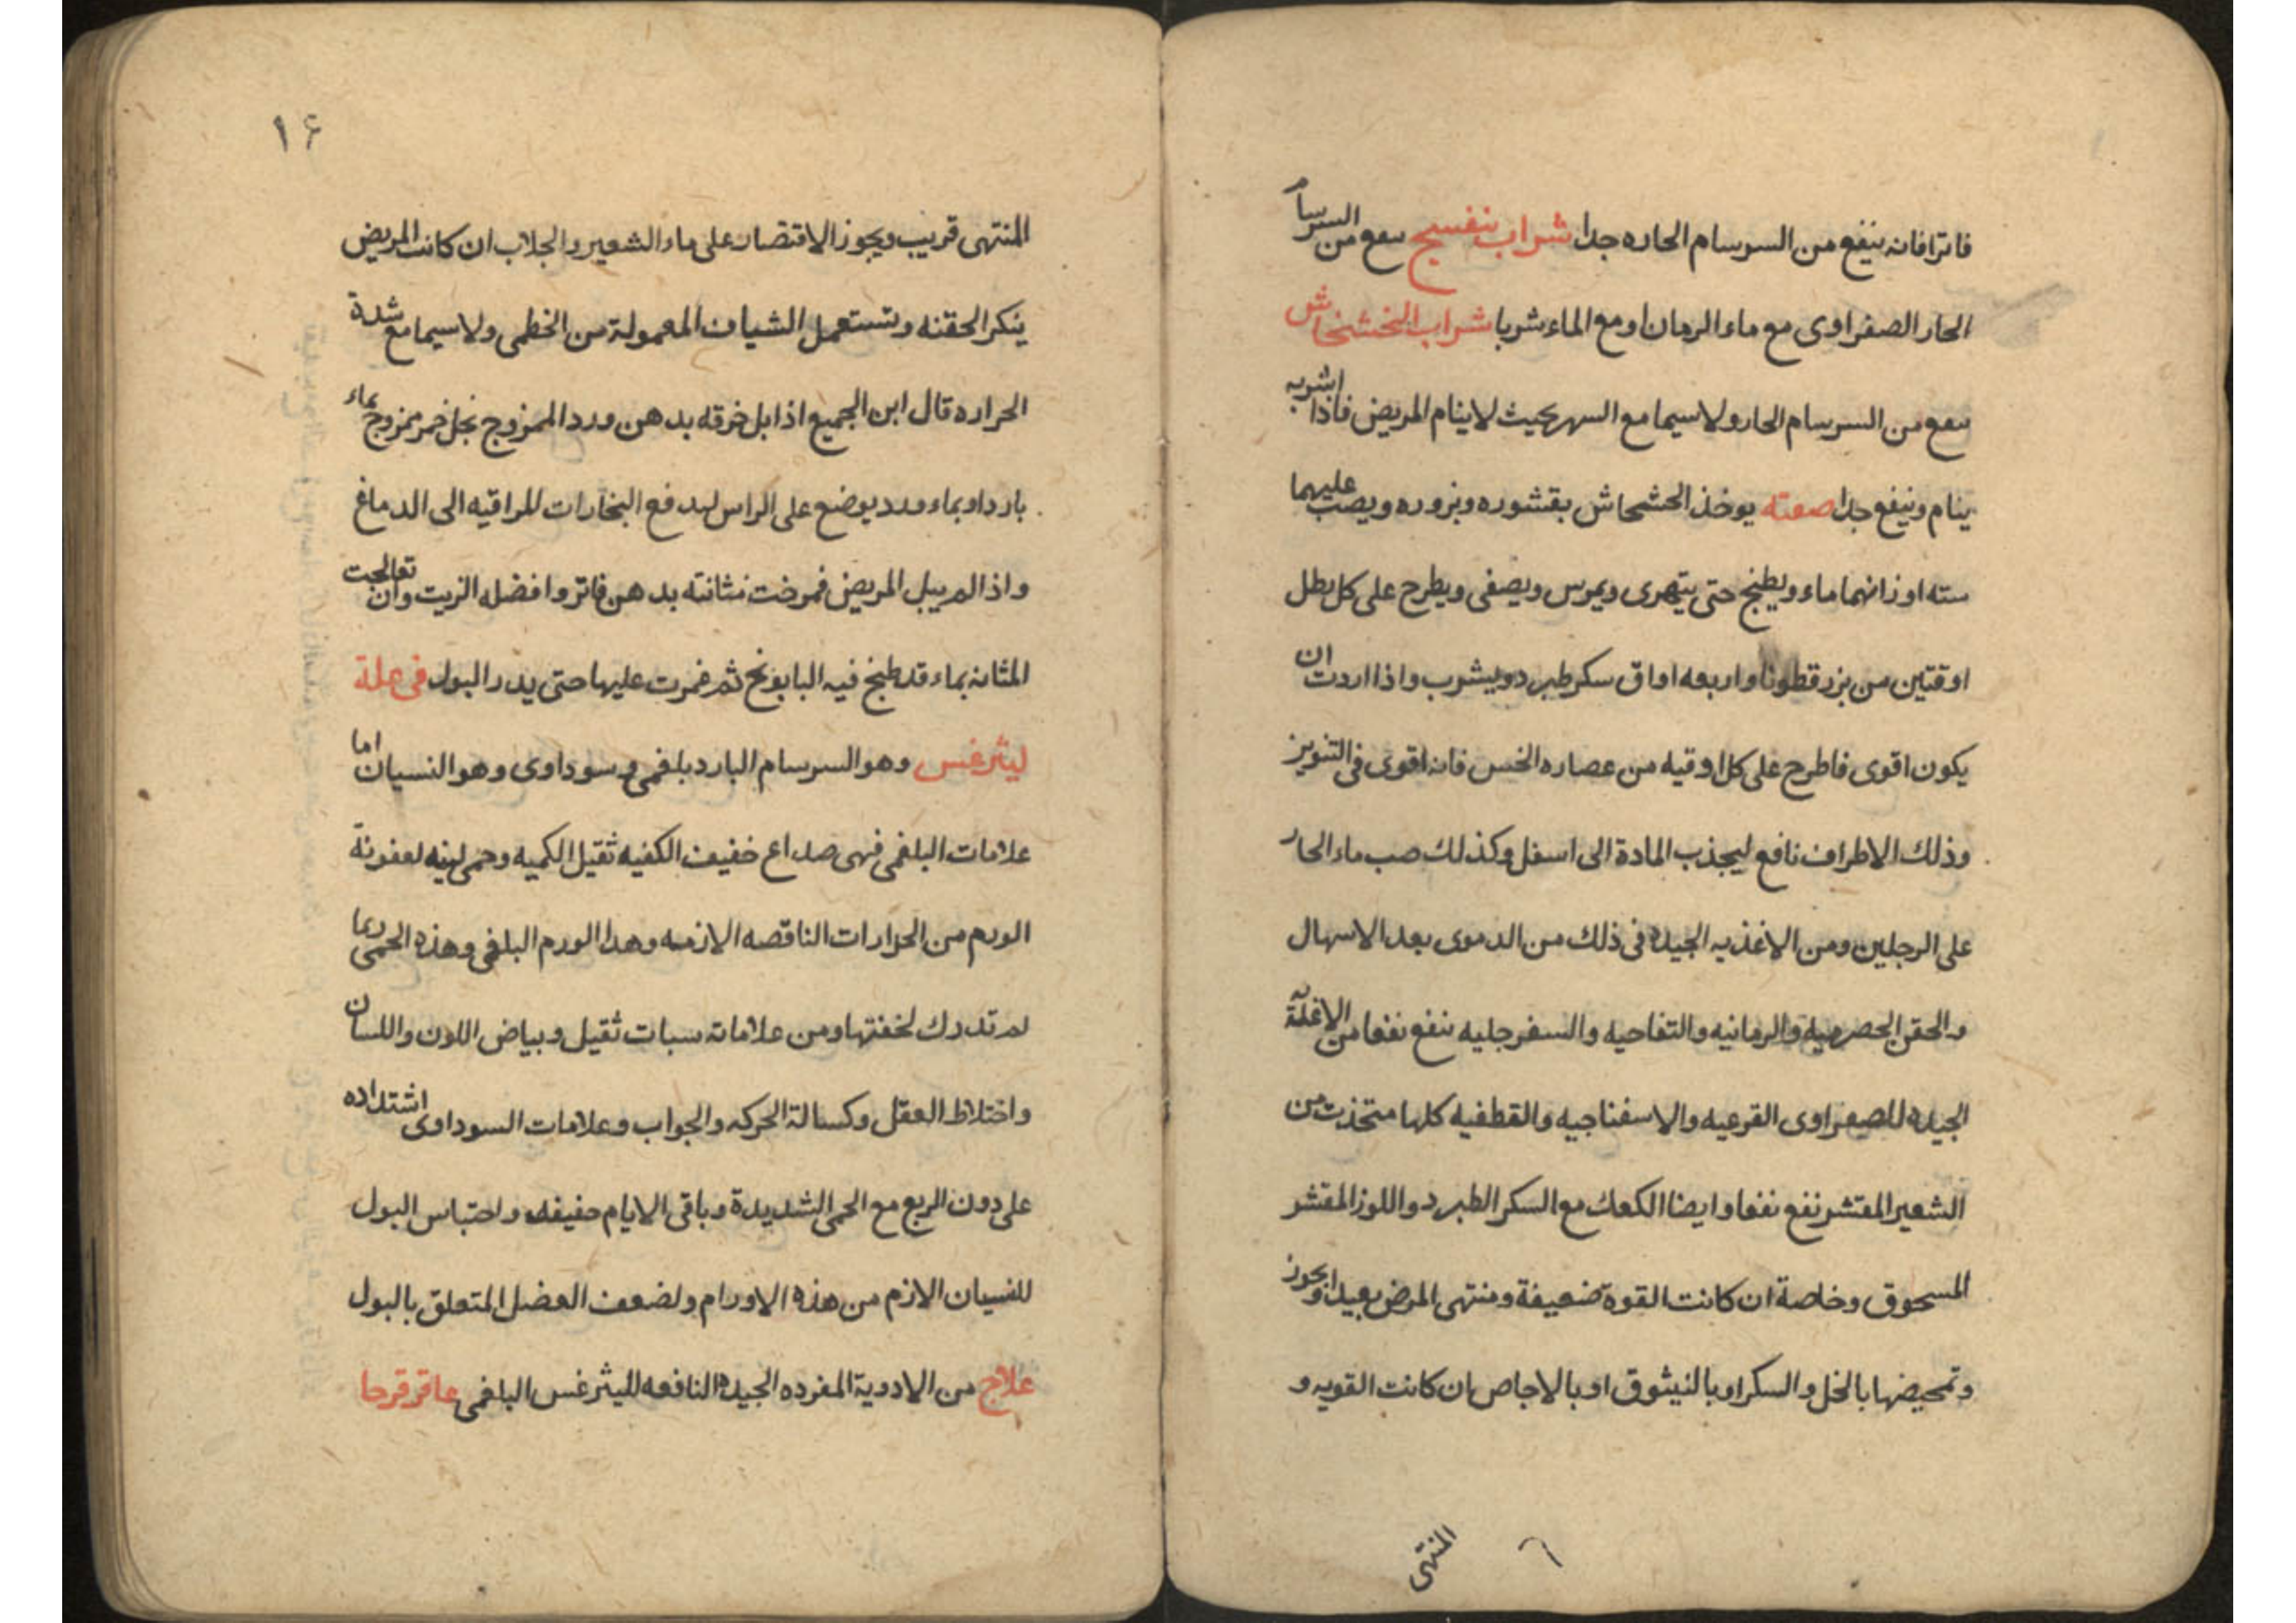 فاترا فانه ينفع من السرسام الحاره جدا شراب بنفسج ينفع من السرسام
الحار الصفراوى مع ماء الرمان او مع الماء شربا شراب الخشخاش
ينفع من السرسام الحار ولاسيما مع السهر بحيث لاينام المريض فاذا اشربه
ينام وينفع جدا صفته يوخذ الخشخاش بقشوره وبزوره ويصب عليهما
سته اوزانهما ماء ويطبخ حتى يتهرى ويمرس ويصفى ويطرح على كل رطل
اوقتين من بزر قطونا واربعه اواق سكر طبرد ويشرب واذا اردت ان
يكون اقوى فاطرح على كل اوقيه من عصاره الخس فانه اقوى فى التنويز
وذلك الاطراف نافع ليجذب المادة الى اسفل وكذلك صب ماء الحار
على الرجلين ومن الاغذيه الجيده فى ذلك من الدموى بعد الاسهال
والحقن الحصرميه والرمانيه والتفاحيه والسفرجليه ينفع نفعا من الاغذية
الجيده للصفراوى القرعيه والاسفناجيه والقطفيه كلها متخذت من
الشعير المقشر نفع نفعا وايضا الكعك مع السكر الطبرد واللوز المقشر
المسحوق وخاصة ان كانت القوة ضعيفة ومنتهى المرض بعيدا ويجوز
وتمحيضها بالخل والسكر او بالنيشوق او بالاجاص ان كانت القويه و
المنتهى
١٤
المنتهى قريب ويجوز الاقتصار على ماء الشعير والجلاب ان كانت المريض
ينكر الحقنه وتستعمل الشياف المعمولة من الخطمى ولاسيما مع شدة
الحراره قال ابن الجميع اذا بل خرقه بدهن ورد الممزوج بخل خمر ممزوج بماء
بارد او بماء ورد يوضع على الراس ليدفع البخارات للراقيه الى الدماغ
واذا لم يبل المريض فمرخت مثانته بدهن فاتر وافضله الزيت وان تعالجت
المثانه بماء قد طبخ فيه البابونج ثم غمرت عليها حتى يدر البول فى علة
ليثرغس وهو السرسام البارد بلغمى وسوداوى وهو النسيان اما
علامات البلغمى فهى صداع خفيف الكفيه ثقيل الكميه وحمى لينه لعفونة
الورم من الحرارات الناقصه الازمه وهذا الورم البلغمى وهذه الحمى ربما
لم تدرك لخفتها ومن علاماته سبات ثقيل وبياض اللون واللسان
واختلاط العقل وكسالة الحركه والجواب وعلامات السوداوى اشتداده
على دون الربع مع الحمى الشديدة وباقى الايام خفيفه واحتباس البول
للنسيان الازم من هذه الاورام ولضعف العضل المتعلق بالبول
علاج من الادوية المفرده الجيده النافعه لليثرغس البلغمى عاقرقرحا